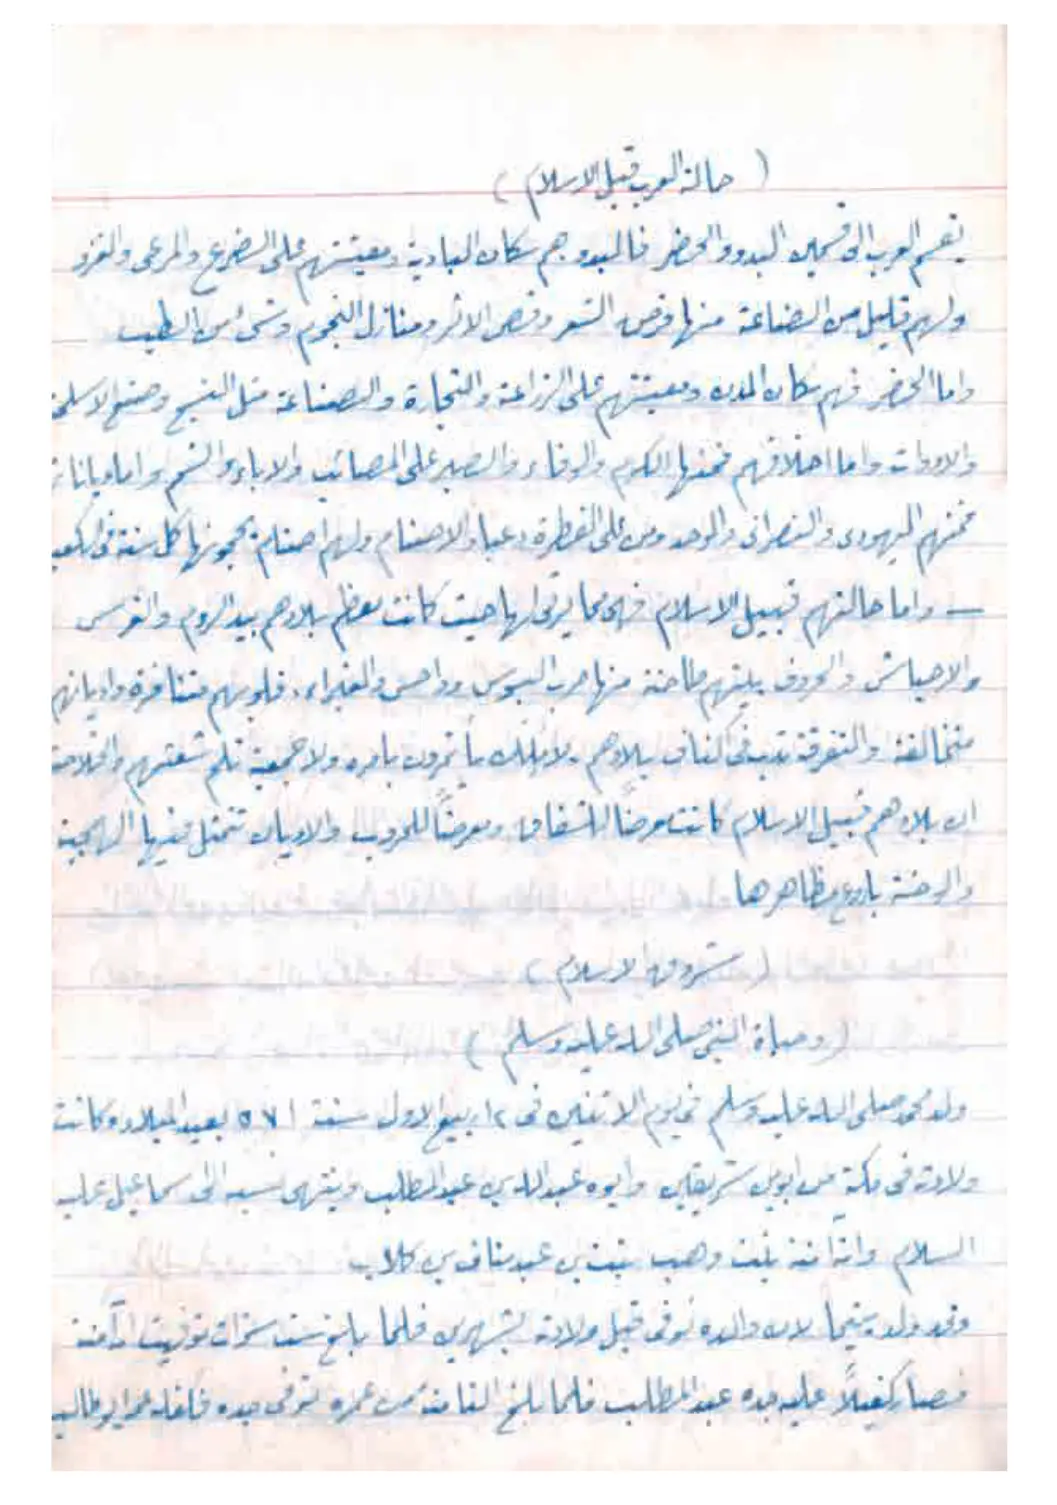 ( حالة العرب قبل الاسلام )
يقسم العرب الى قسمين البدو والحضر فالبدو هم سكان البادية ومعيشتهم على الضرع والمرعى والغزو
ولهم قليل من الصناعة منها قرض الشعر وقص الاثر ومنازل النجوم وشئ من الطب
واما الحضر فهم سكان المدن ومعيشتهم على الزراعة والتجارة والصناعة مثل النسج وصنع الاسلحة
والادوات واما اخلاقهم فمنها الكرم والوفاء والصبر على المصائب والاباء والشمم واما
فمنهم اليهودى والنصرانى والموحد ومن على الفطرة وعباد الاصنام ولهم اصنام يحجونها كل سنة فى
ــ واما حالتهم قبيل الاسلام فهى مما يرثى لها حيث كانت معظم بلادهم بيد الروم والفرس
والاحباش والحروف بينهم طاحنة منها حرب البسوس وداحس والغبراء. قلوبهم متنافرة واديانهم
متخالفة والتفرقة تدب فى أكناف بلادهم. لا ملك يأتمرون بامره ولا جمعية تلم شعثهم والخلاصة
ان بلادهم قبيل الاسلام كانت مرضاً للشقاق ومعرضاً للحروب والاديان تتمثل فيها الهمجية
والوحشة باروع مظاهرها
( شروق الاسلام )
( وحياة النبى صلى الله عليه وسلم )
ولد محمد صلى الله عليه وسلم فى يوم الاثنين فى ١٢ ربيع الاول سنة ٥٧١ بعد الميلاد وكانت
ولادته فى مكة من ابوين شريفين وابوه عبدالله بن عبدالمطلب وينتهى نسبه الى اسماعيل عليه
السلام وامه آمنة بنت وهب بن عبدمناف بن كلاب
وقد ولد يتيما لان والده توفى قبل ولادته بشهرين فلما بلغ ست سنوات توفيت امه آمنة
فصار كفيلاً عليه جده عبدالمطلب فلما بلغ الثامنة من عمره توفى جده فكفله عمه ابوطالب